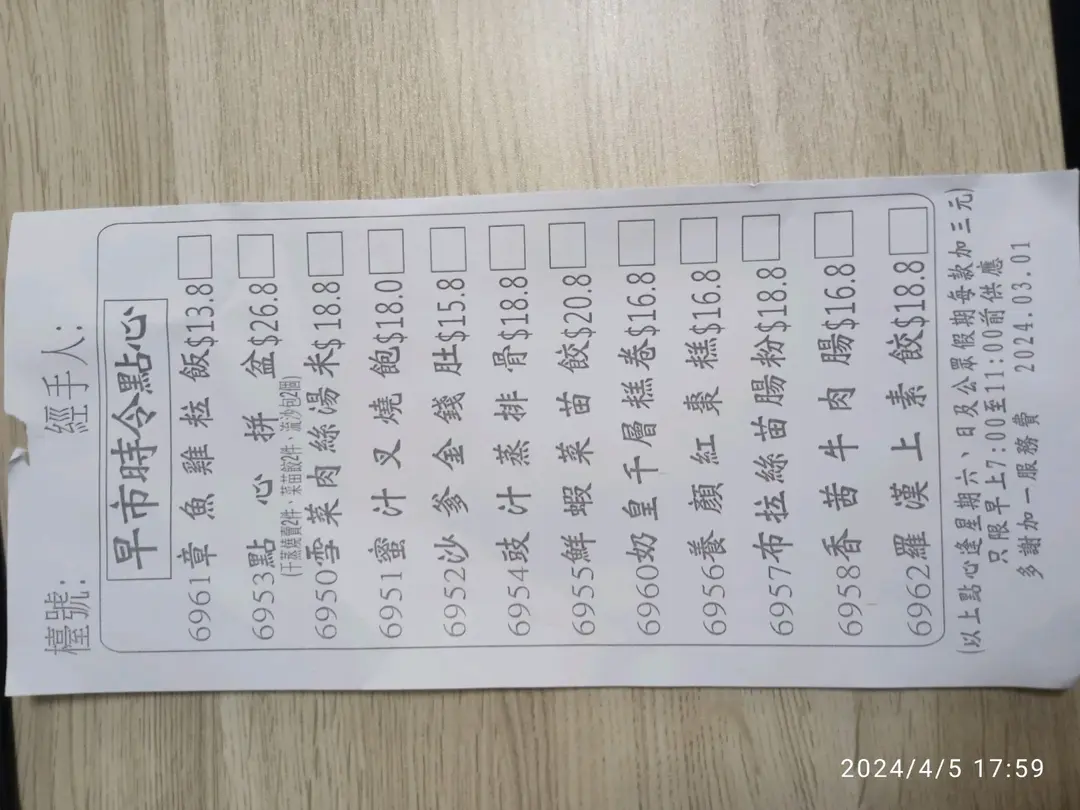 檯號：
經手人：
早市時令點心
6961章魚雞粒飯$13.8
6953點心拼盆$26.8
(干蒸燒賣2件、菜苗餃2件、流沙包2個)
6950雪菜肉絲湯米$18.8
6951蜜汁叉燒飽$18.0
6952沙爹金錢肚$15.8
6954豉汁蒸排骨$18.8
6955鮮蝦菜苗餃$20.8
6960奶皇千層糕卷$16.8
6956養顏紅棗糕$16.8
6957布拉絲苗腸粉$18.8
6958香茜牛肉腸$16.8
6962羅漢上素餃$18.8
(以上點心逢星期六、日及公眾假期每款加三元)
只限早上7:00至11:00前供應
多謝加一服務費 2024.03.01
2024/4/5 17:59